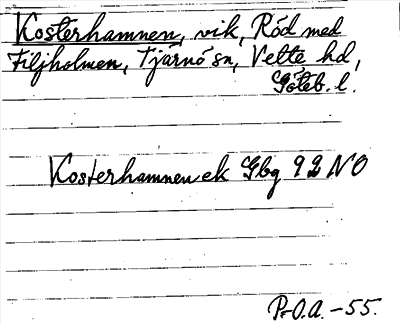 Kosterhamnen, vik, Röd med
Filjholmen, Tjärnö sn, Vette hd,
Göteb. l.
Kosterhamnen ek Gbg 92 NO
P-O.A. -55.